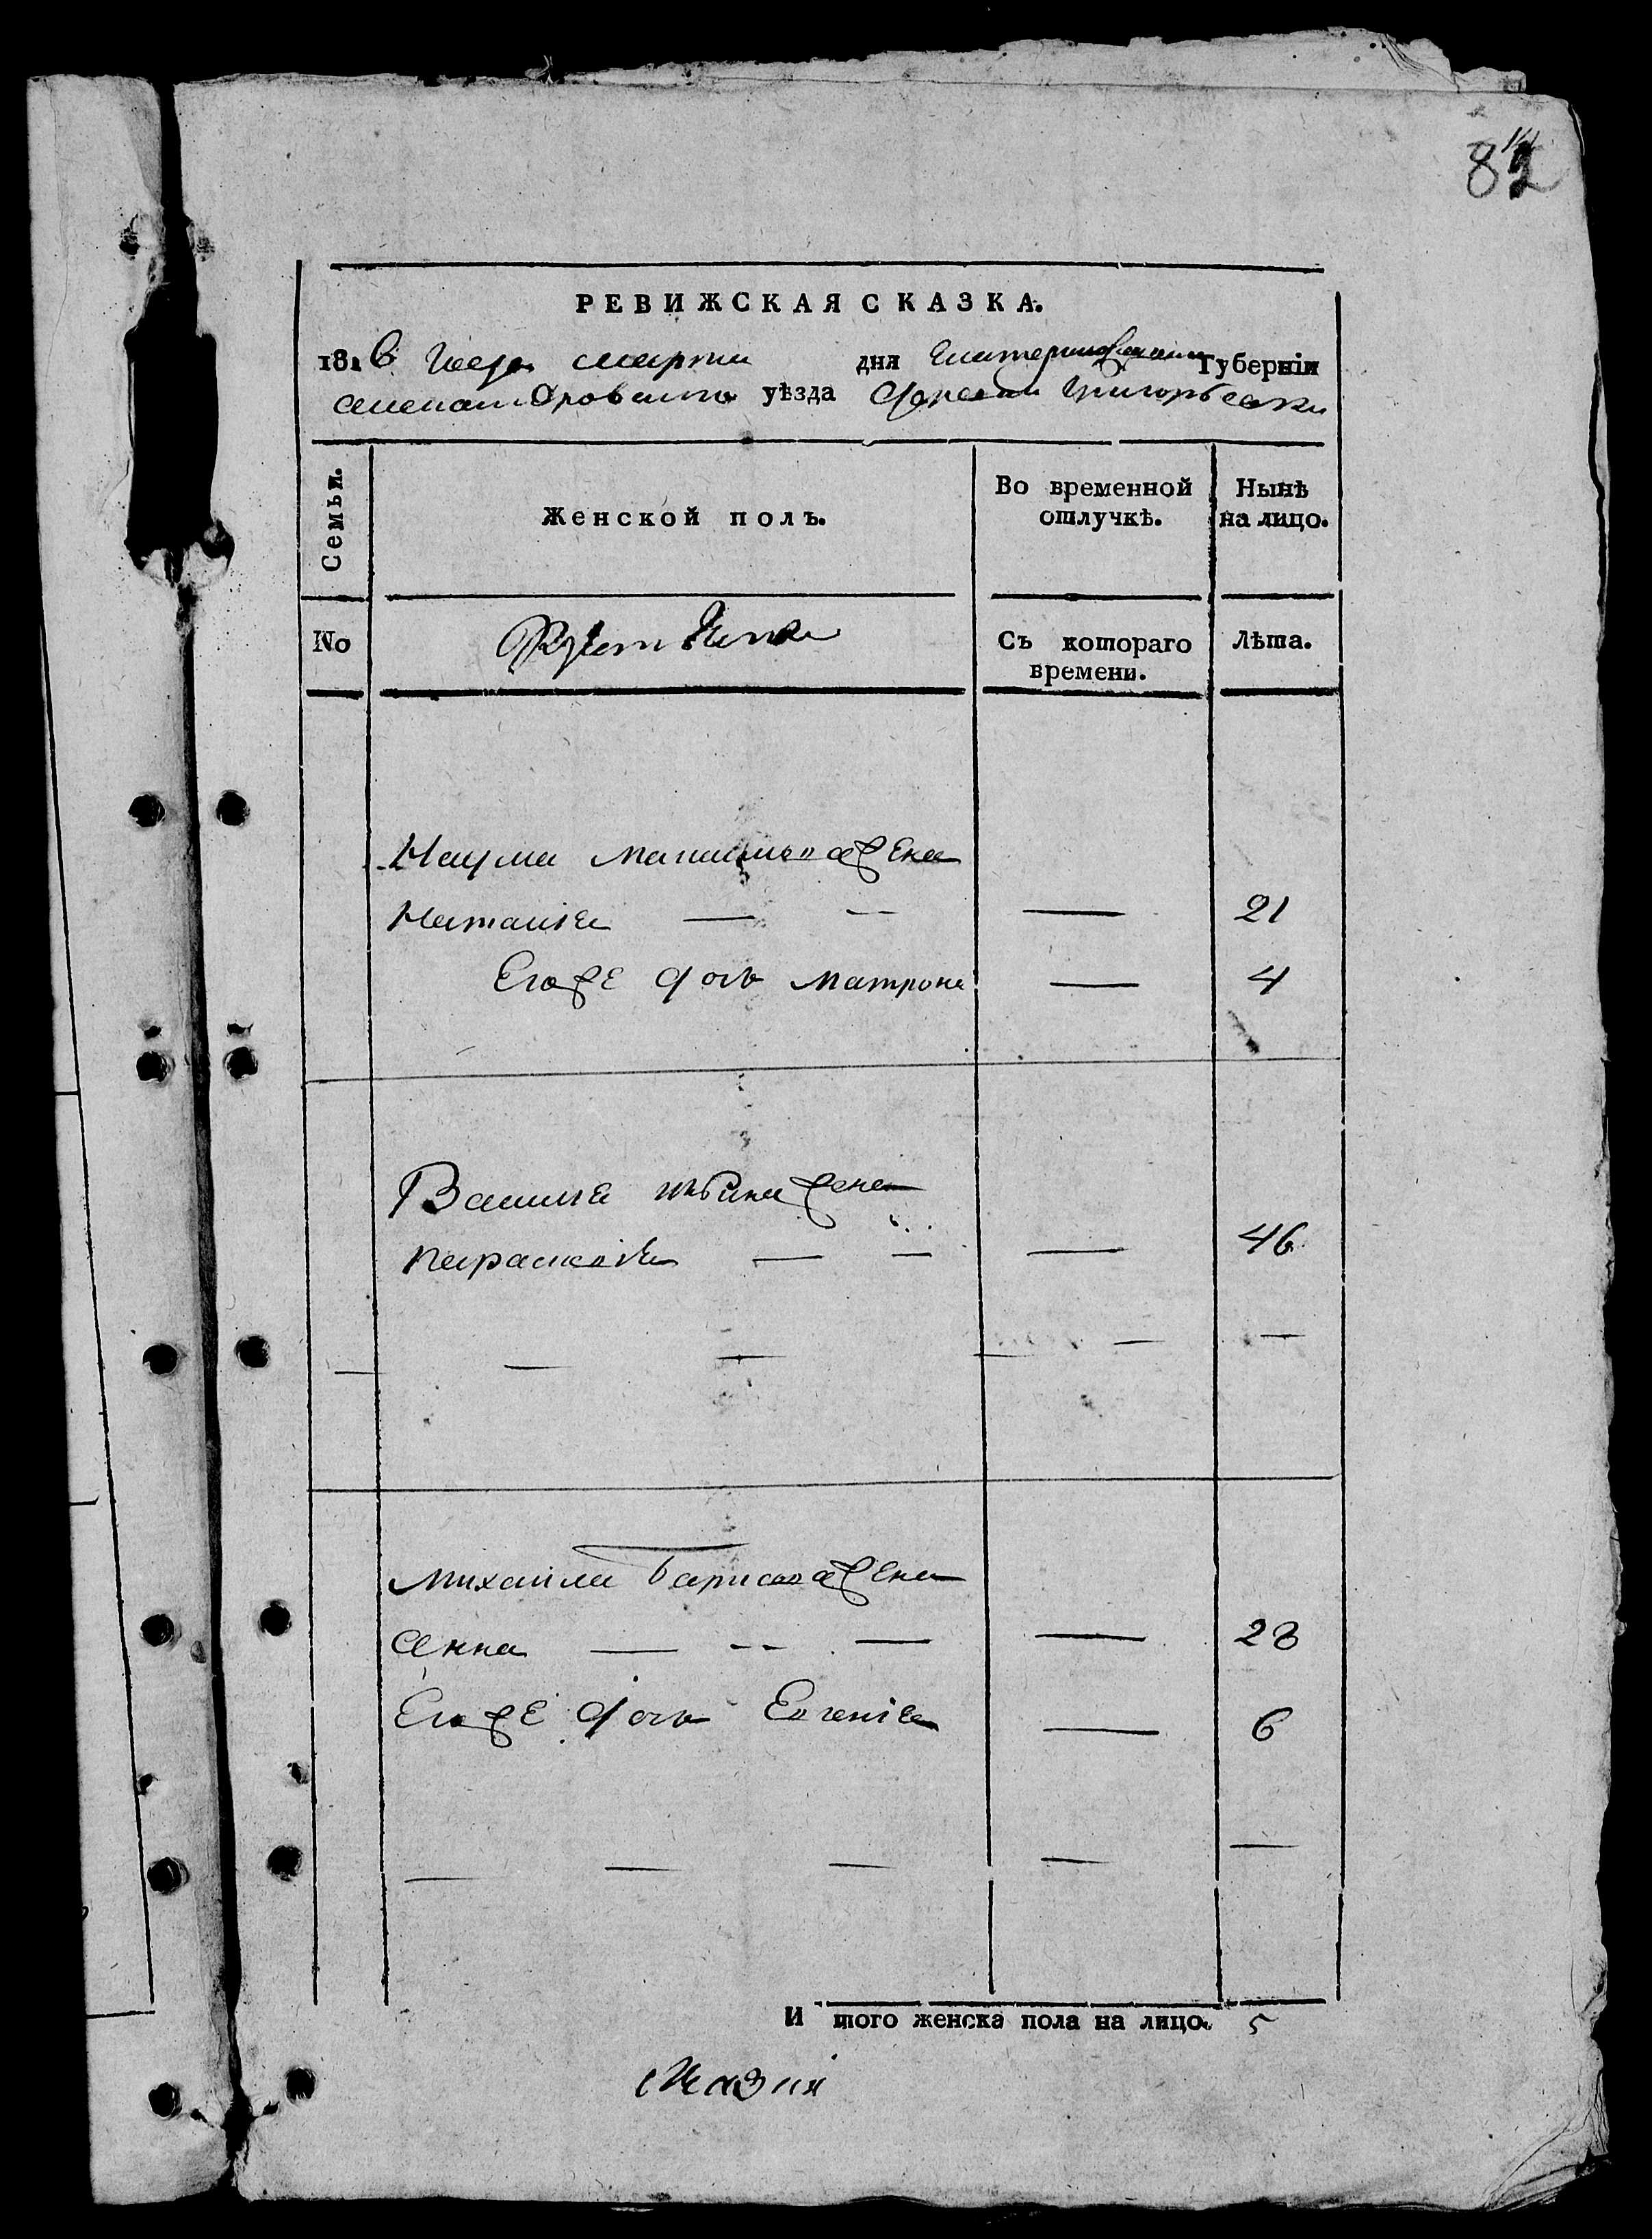 82
РЕВИЖСКАЯ СКАЗКА.
1816 Года марта дня Екатеринославской Губернiи
Александровского уѣзда Деревни Григорьевки
Семьи.
Женской полъ.
Во временной отлучкѣ.
Нынѣ на лицо.
No
Съ котораго времени.
Лѣта.
Наума жена
Наталiя — — — 21
Его же дочь Матрона — 4
Василiя жена
Параскевiя — — — 46
Михаила Барисова жена
Анна — -- — — 28
Его же дочь Евгенiя — 6
И того женска пола на лицо. 5